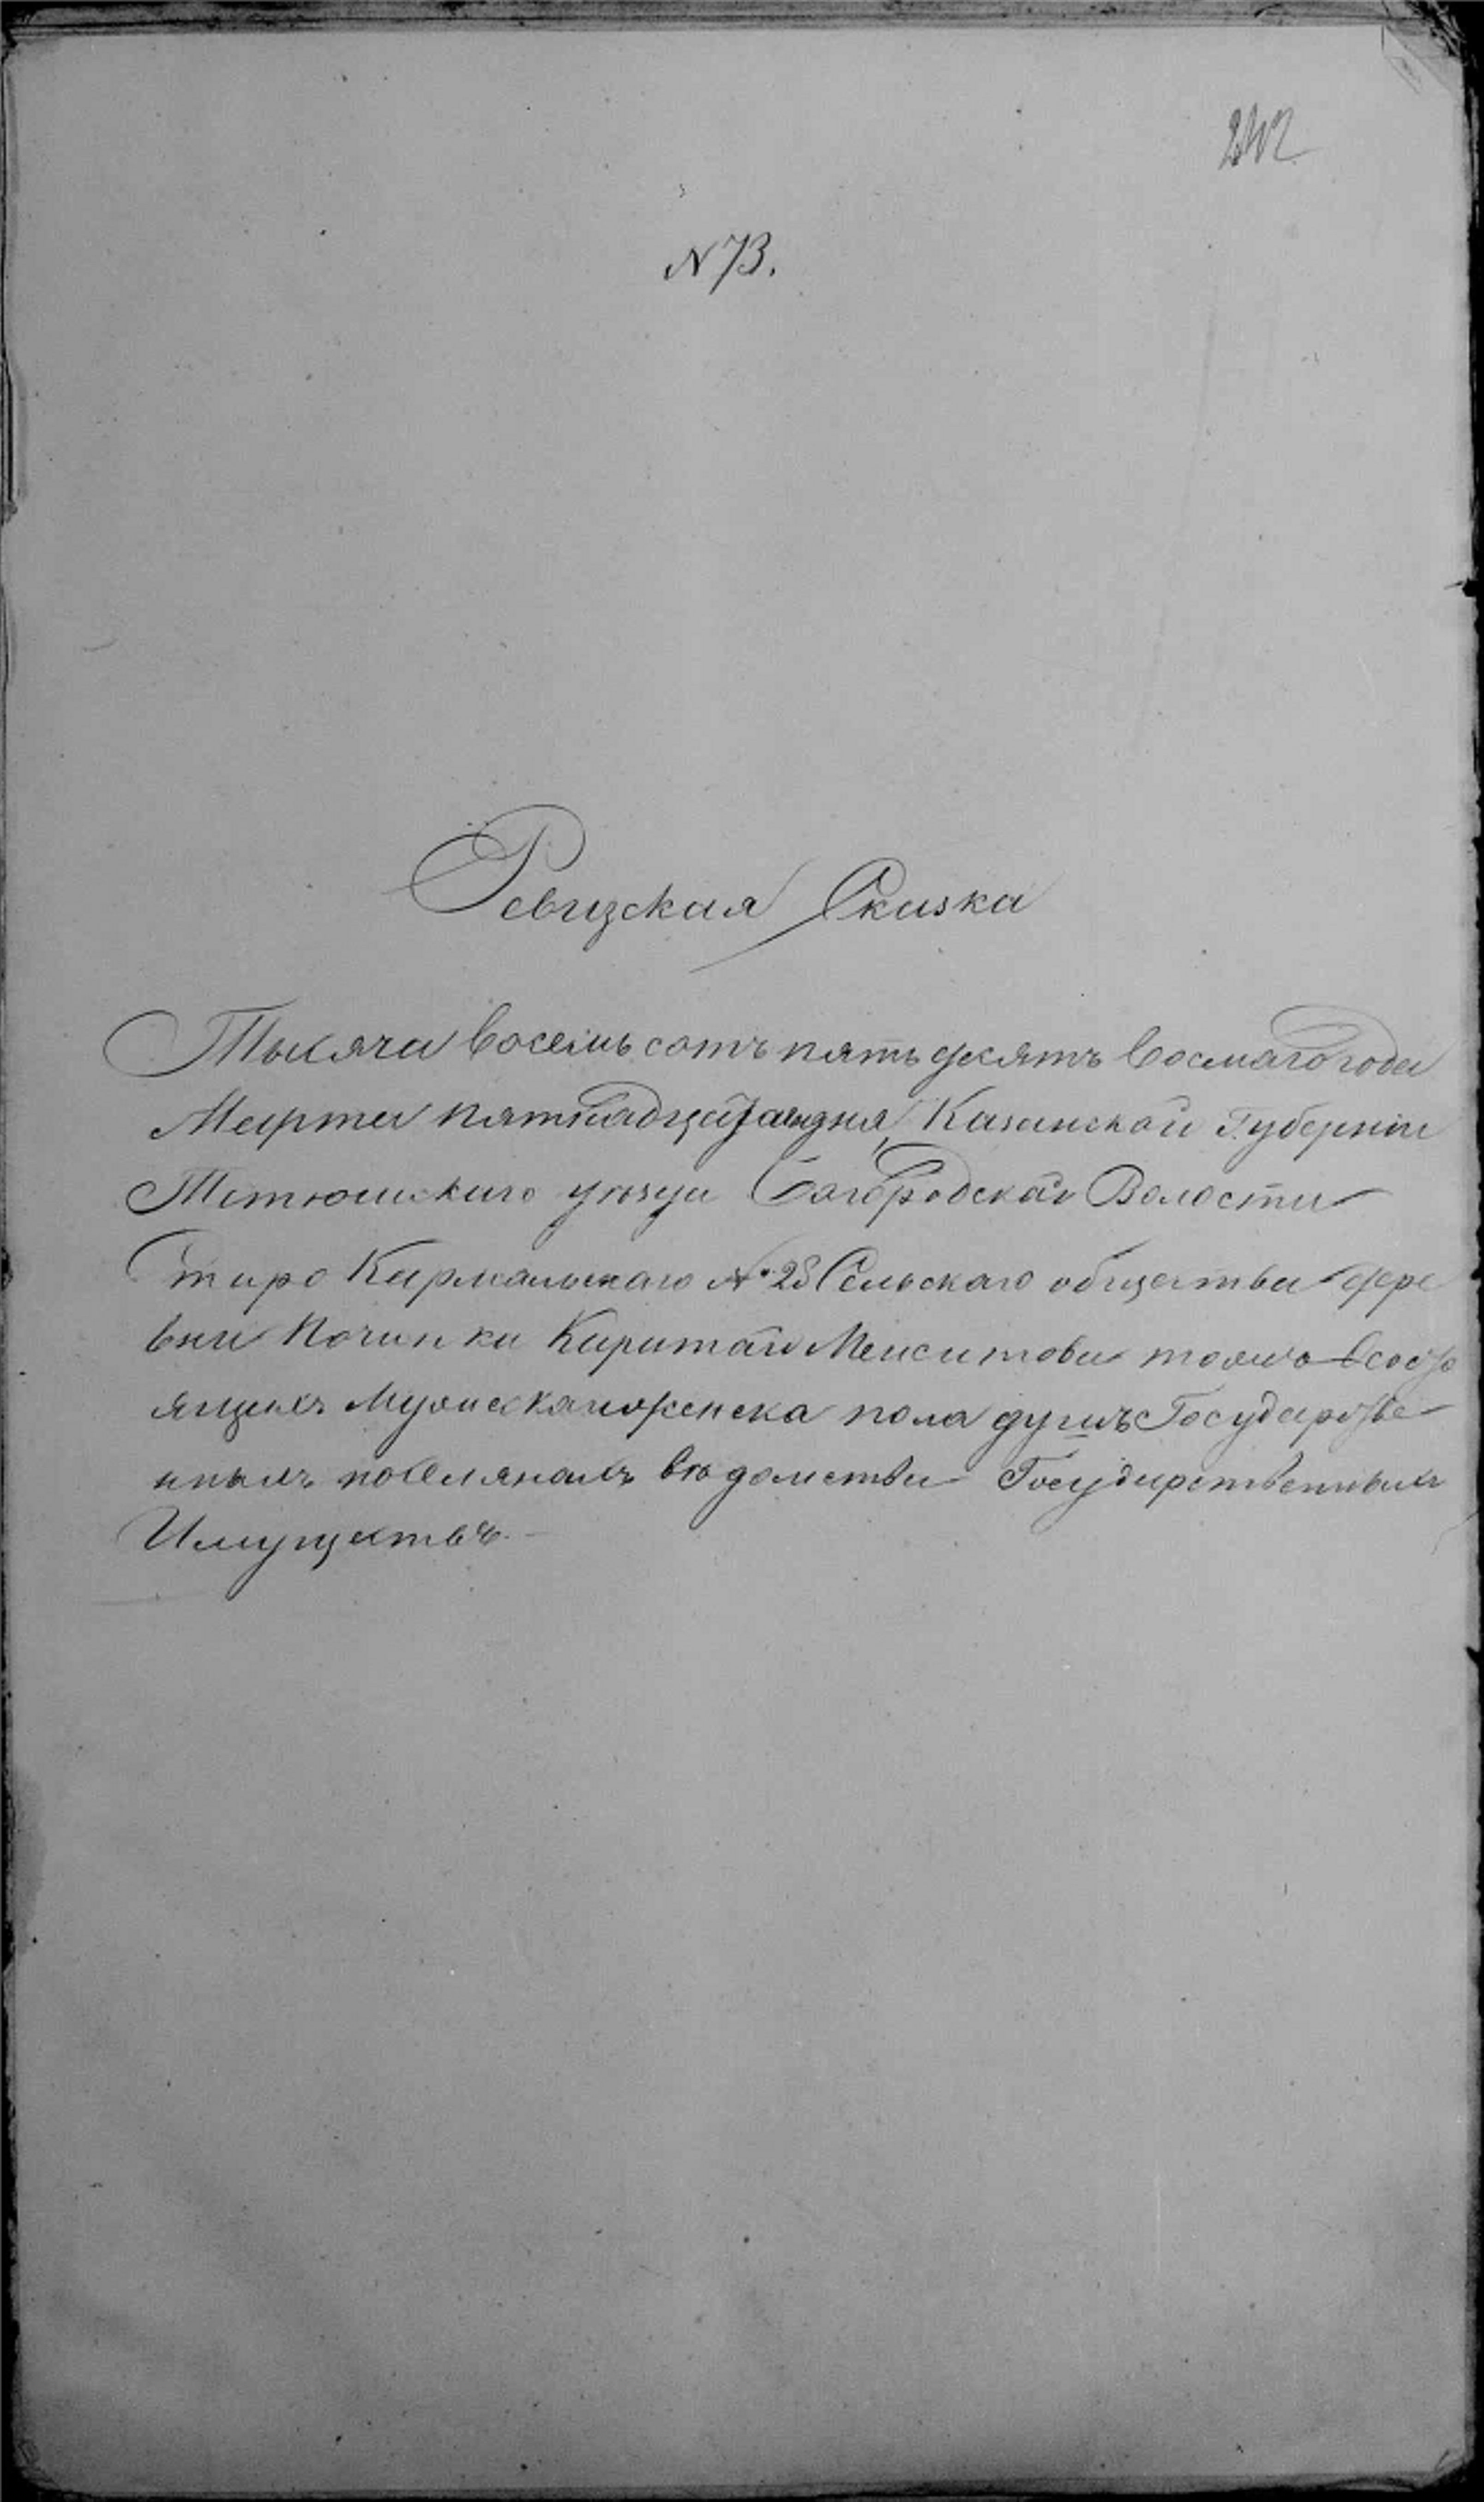 242
N 73.
Ревизская Сказка
Тысяча восемь сотъ пять десятъ восмаго года
Марта пятнадцатаго дня, Казанской Губерніи
Тетюшскаго уѣзда Богородской Волости
Старо Кармальскаго № 28 Сельскаго общества дере
вни Починка Киритай Менситова
ящихъ Мужеска и женска пола душъ Государстве
нныхъ поселянахъ вѣдомства Государственныхъ
Имуществъ.